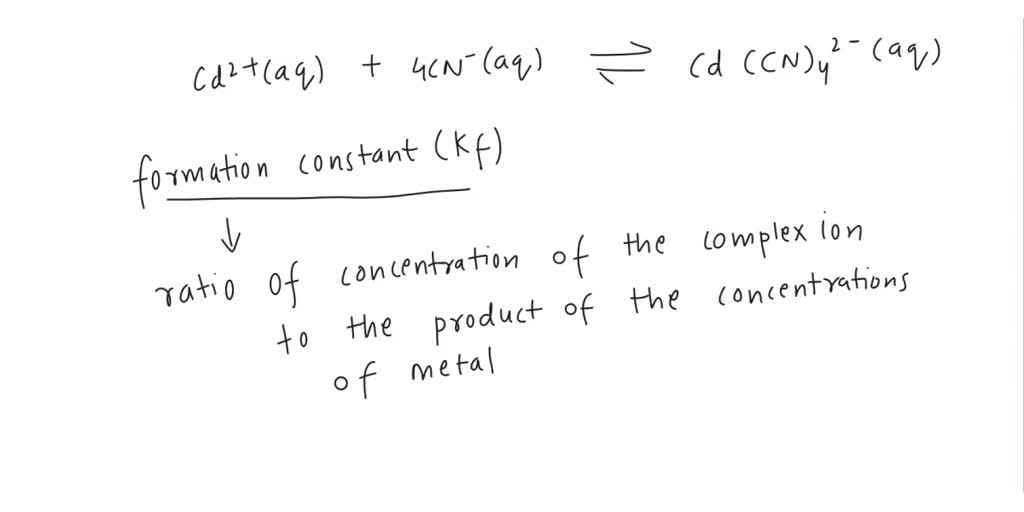 Cd²⁺(aq) + 4CN⁻(aq) ⇌ Cd (CN)₄²⁻(aq)
formation constant (Kf)
↓
ratio of concentration of the complex ion
to the product of the concentrations
of metal